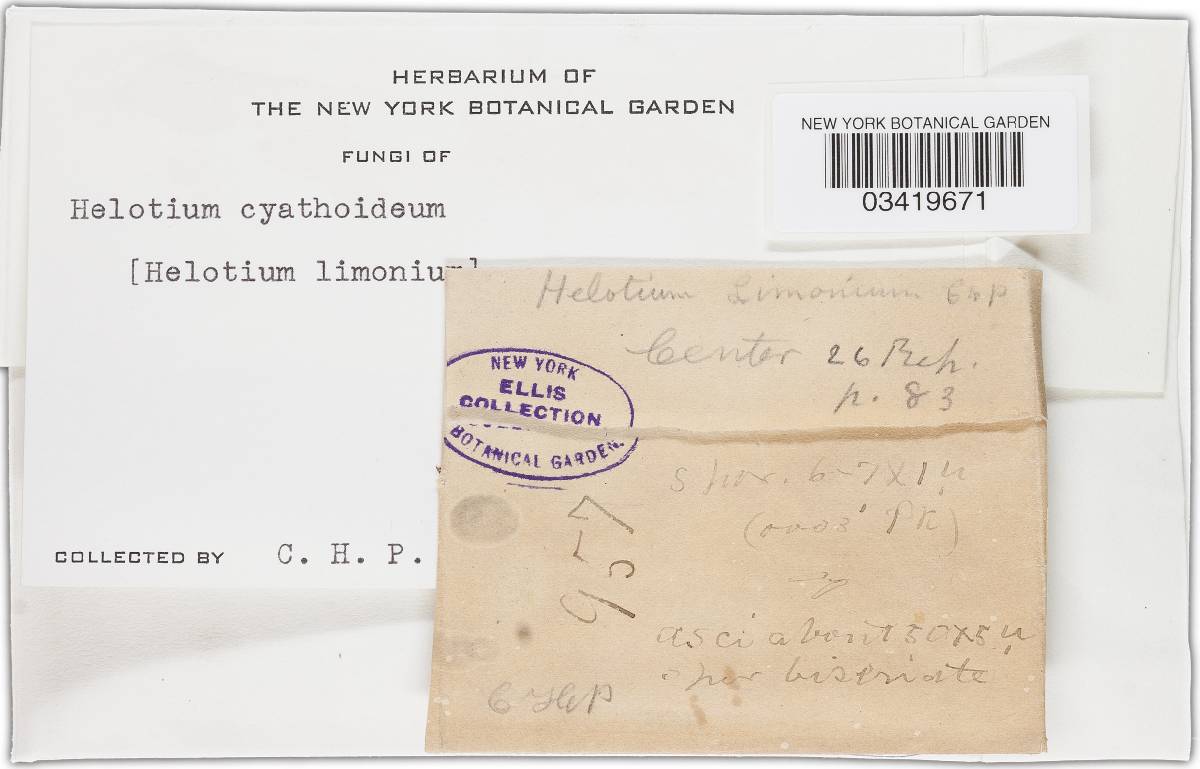 HERBARIUM OF
THE NEW YORK BOTANICAL GARDEN
FUNGI OF
Helotium cyathoideum
[Helotium limonium]
COLLECTED BY C. H. P.
NEW YORK BOTANICAL GARDEN
03419671
Helotium Limonium C&P
Center 26 Rep.
p. 83
NEW YORK
ELLIS
COLLECTION
BOTANICAL GARDEN.
spor. 6-7x1µ
(0003' Pk)
957
asci about 50x5µ
spor biseriate
C H P